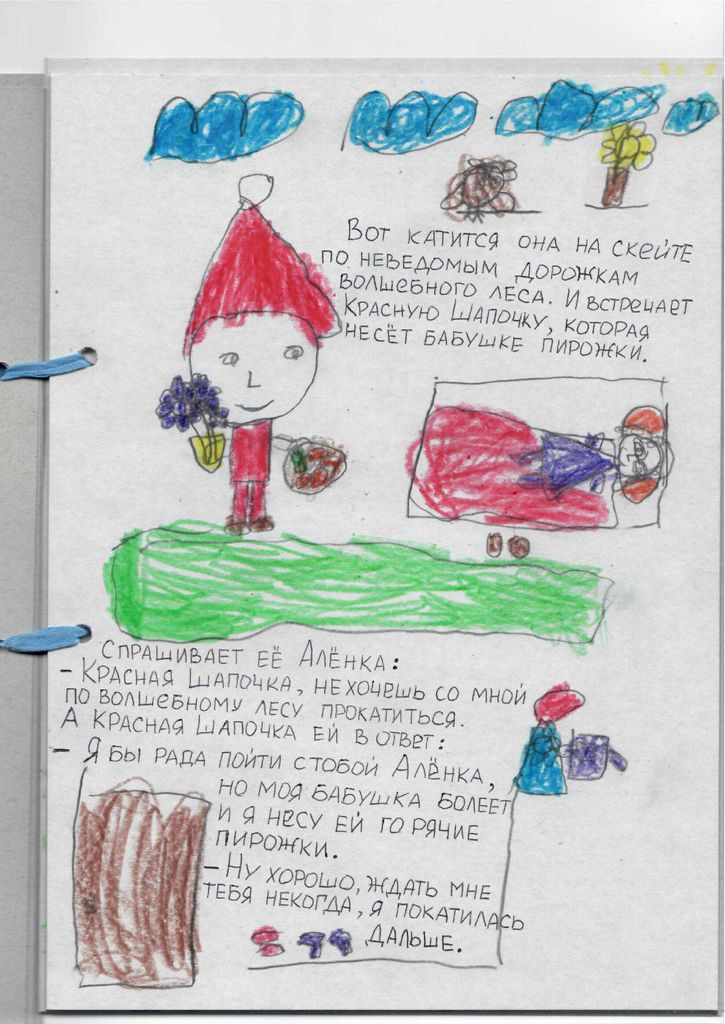 Вот катится она на скейте
по неведомым дорожкам
волшебного леса. И встречает
Красную Шапочку, которая
несёт бабушке пирожки.
Спрашивает её Алёнка:
- Красная шапочка, не хочешь со мной
по волшебному лесу прокатиться.
А Красная шапочка ей в ответ:
- Я бы рада пойти с тобой Алёнка,
но моя бабушка болеет
и я несу ей горячие
пирожки.
- Ну хорошо, ждать мне
тебя некогда, я покатилась
дальше.